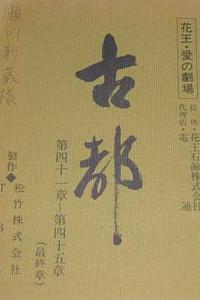 花王・愛の劇場
提供・花王石鹸株式会社
代理店・電通
古都
第四十一章～第四十五章
(最終章)
製作・松竹株式会社
TB